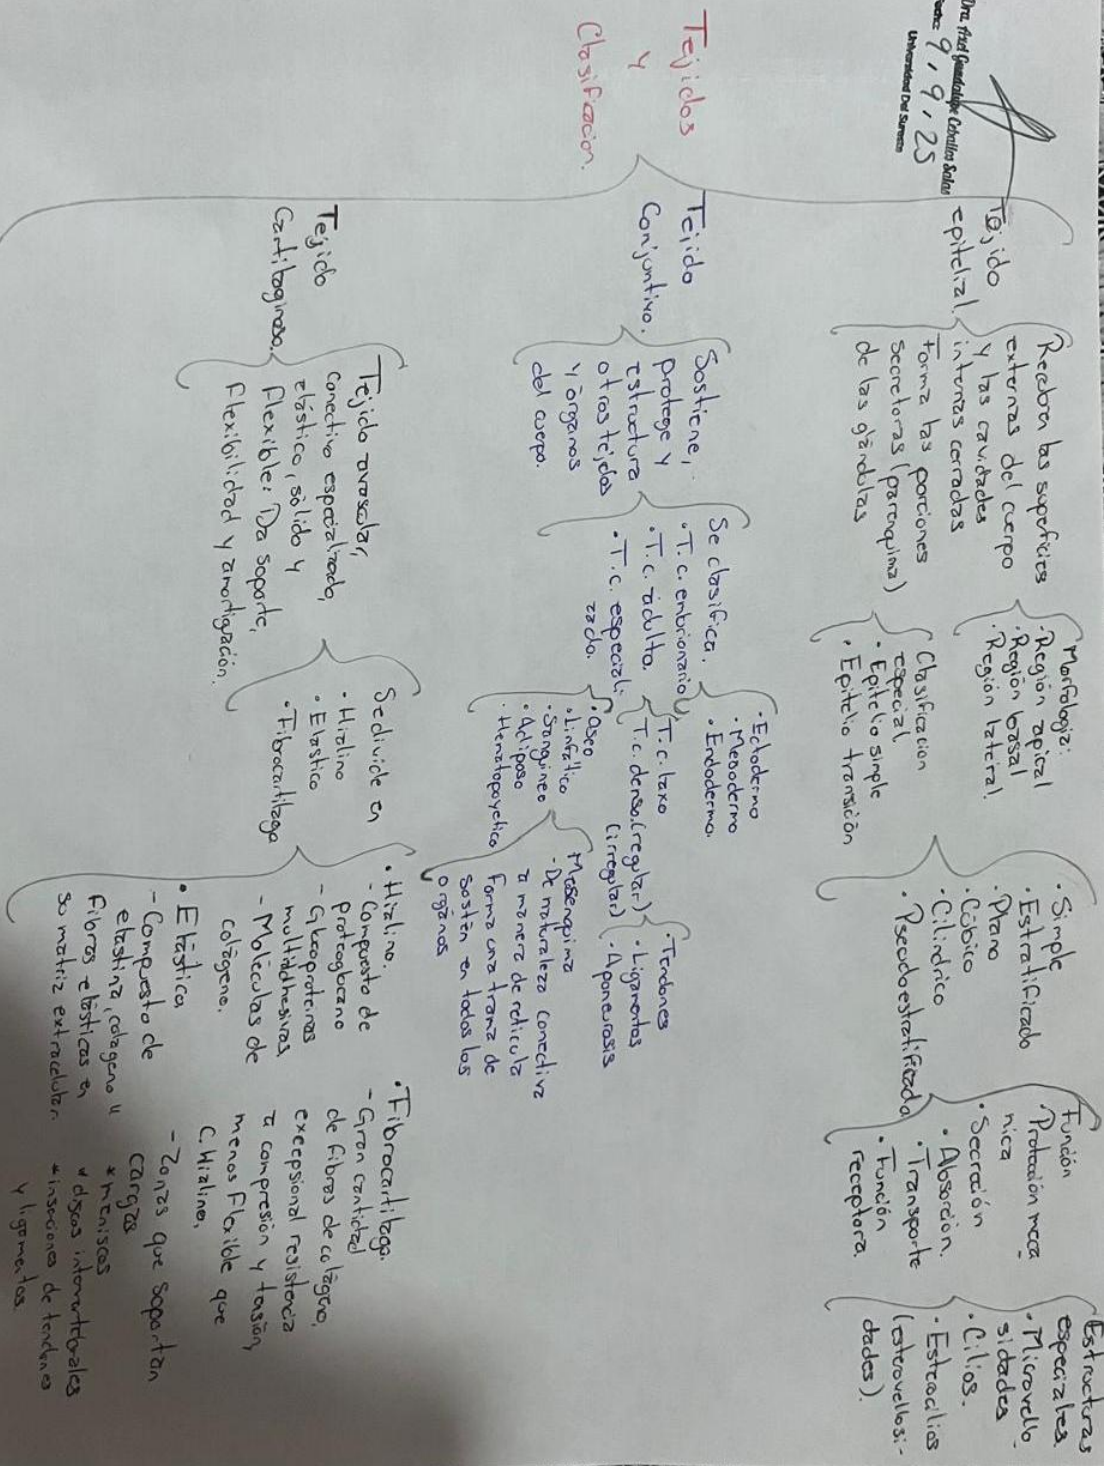 Dra. Axel Guadalupe Ceballos Salas
Fecha: 9, 9, 25
Universidad Del Sureste
Tejidos
y
Clasificacion.
Tejido
epitelial.
Recubra las superficies
externas del cuerpo
y las cavidades
internas cerradas
Forma las porciones
secretoras (parenquima)
de las glándulas
Morfologia:
·Región apical
·Región basal
·Región lateral.
Clasificacion
especial
· Epitelio simple
· Epitelio transición
· Simple
· Estratificado
· Plano
· Cúbico
· Cilindrico
· Pseudoestratificado
Función
· Protección meca
nica
· Secreción
· Absorción.
· Transporte
· Función
receptora.
Estructuras
especiales.
· Microvello
sidades
· Cilios.
· Estereocilios
(esterovellosi-
dades).
Tejido
Conjuntivo.
Sostiene,
protege y
estructura
otros tejidos
y órganos
del cuerpo.
Se clasifica.
· T.c. enbrionario
· T.c. adulto.
· T.c. especiali
zado.
· Ectodermo
· Mesodermo
· Endodermo.
T.c. laxo
T.c. denso.(regular)
(irregular)
· Tendones
· Ligamentos
· Aponeurosis
· Oseo
· Linfático
· Sanguineo
· Adiposo
· Hematopoyetico
Mesenquima
- De naturaleza conectiva
a manera de reticula
forma una trama de
sostén en todos los
organos
Tejido
Cartilaginoso.
Tejido avascular,
conectivo especializado,
elástico, sólido y
flexible: Da soporte,
flexibilidad y amortiguación.
Se divide en
· Hialino
· Elastico
· Fibrocartilago
· Hialino.
- Compuesto de
proteoglucano
- Glucoproteinas
multiadhesivas
- Moléculas de
colágeno.
· Elástica
- Compuesto de
elastina, colageno II
fibras elásticas en
su matriz extracelular.
· Fibrocartilago.
- Gran cantidad
de fibras de colágeno,
excepsional resistencia
a compresión y tensión,
menos flexible que
C. Hialino.
- Zonas que soportan
cargas
* meniscos
* discos intervertebrales
* insersiones de tendones
y ligamentos.